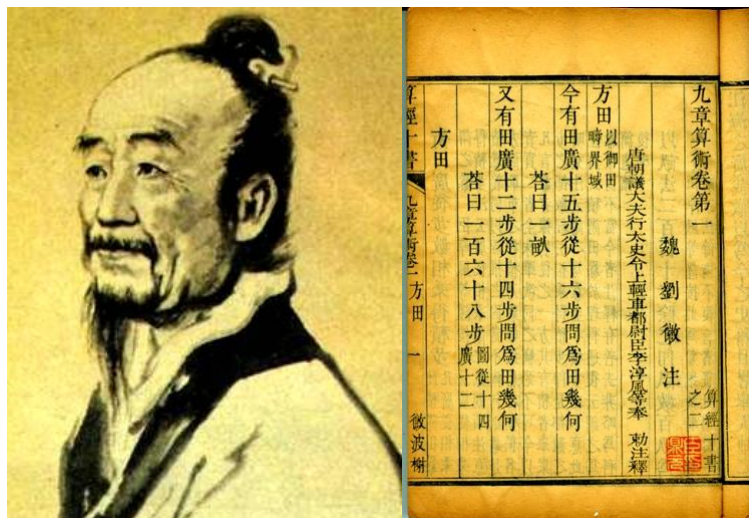 九章算術卷第一
算經十書
之二
魏 劉 徽 注
唐朝議大夫行太史令上輕車都尉臣李淳風等奉 勅注釋
方田以御田疇界域
今有田廣十五步從十六步問爲田幾何
荅曰一畝
又有田廣十二步從十四步問爲田幾何
荅曰一百六十八步圖從十四廣十二
方田
算經十書 九章算術卷一 方田 一 微波榭